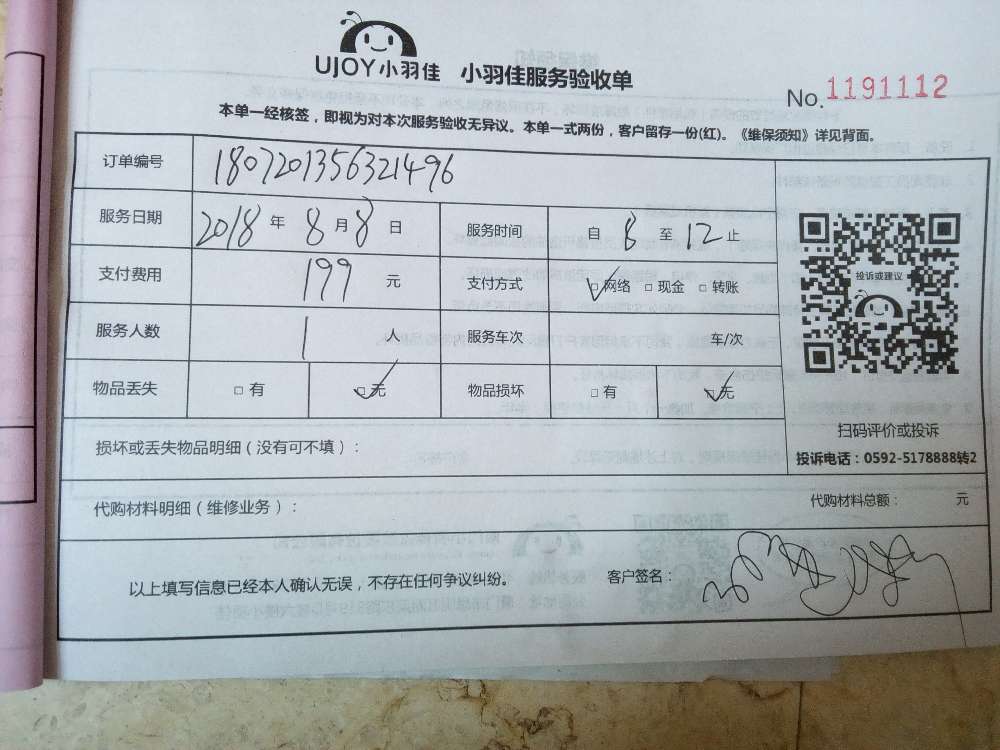 UJOY小羽佳 小羽佳服务验收单
No. 1191112
本单一经核签，即视为对本次服务验收无异议。本单一式两份，客户留存一份(红)。《维保须知》详见背面。
订单编号 1807201356321496
服务日期 2018 年 8 月 8 日 服务时间 自 8 至 12 止
支付费用 199 元 支付方式 ☑网络 □现金 □转账
服务人数 1 人 服务车次 车/次
物品丢失 □有 ☑无 物品损坏 □有 ☑无
投诉或建议
扫码评价或投诉
投诉电话：0592-5178888转2
损坏或丢失物品明细（没有可不填）：
代购材料明细（维修业务）： 代购材料总额： 元
以上填写信息已经本人确认无误，不存在任何争议纠纷。 客户签名：